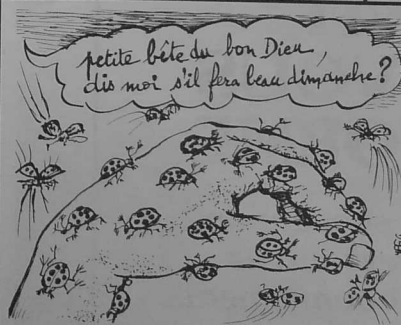 petite bête du bon Dieu,
dis moi s'il fera beau dimanche?